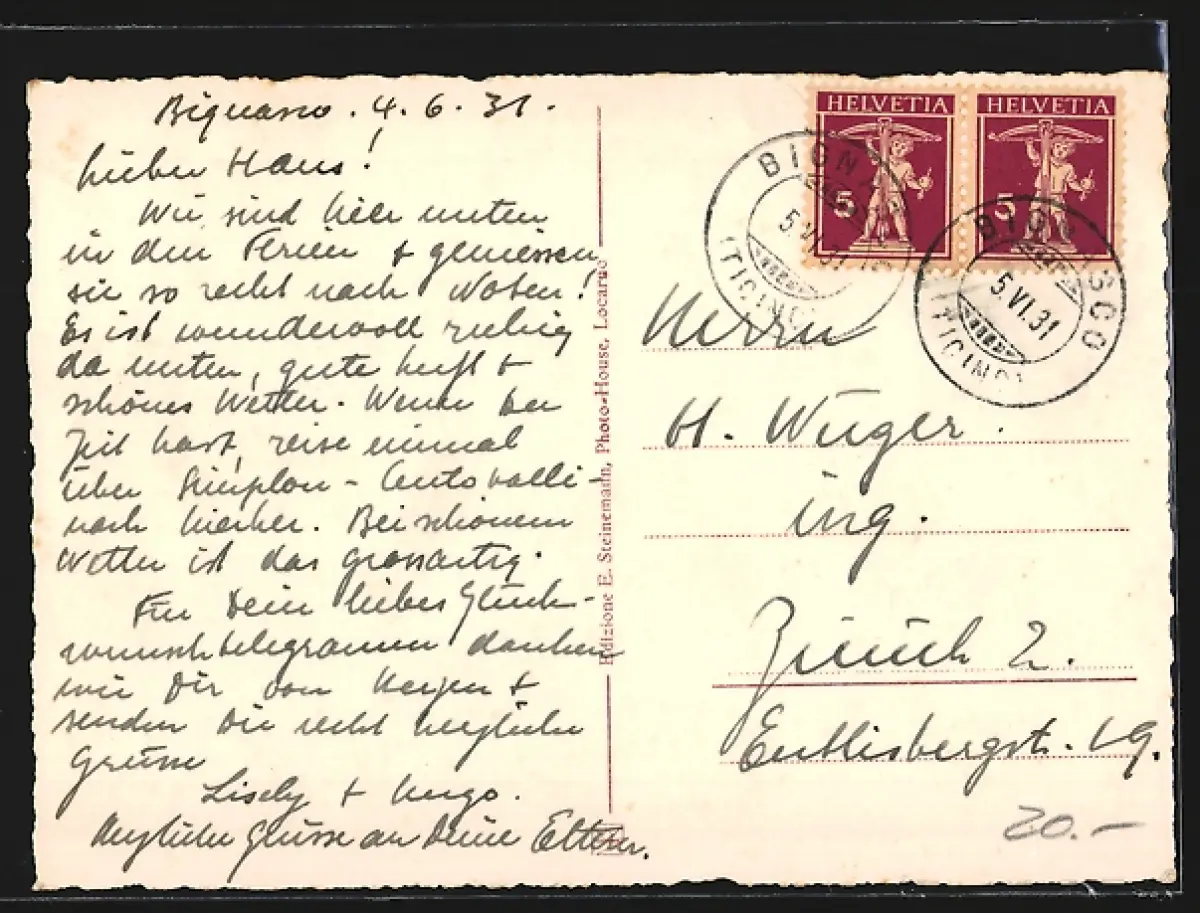 Bignasco. 4. 6. 31.
Lieber Hans!
Wir sind hier unten
in den Ferien & geniessen
sie so recht nach Noten!
Es ist wundervoll ruhig
da unten, gute Luft &
schönes Wetter. Wenn Du
Zeit hast, reise einmal
über Simplon - Centovalli -
nach hierher. Bei schönem
Wetter ist das grossartig.
Für Dein liebes Glück-
wunschtelegramm danken
wir Dir von Herzen &
senden Dir recht herzliche
Grüsse
Lisely & Hugo.
Herzliche Grüsse an Deine Eltern.
Edizione E. Steinemann, Photo-House, Locarno
HELVETIA
5
HELVETIA
5
BIGNASCO
5.VI.31
(TICINO)
BIGNASCO
5.VI.31
(TICINO)
Herrn
H. Wüger.
ing.
Zürich 2.
Entlisbergstr. 19.
20.-